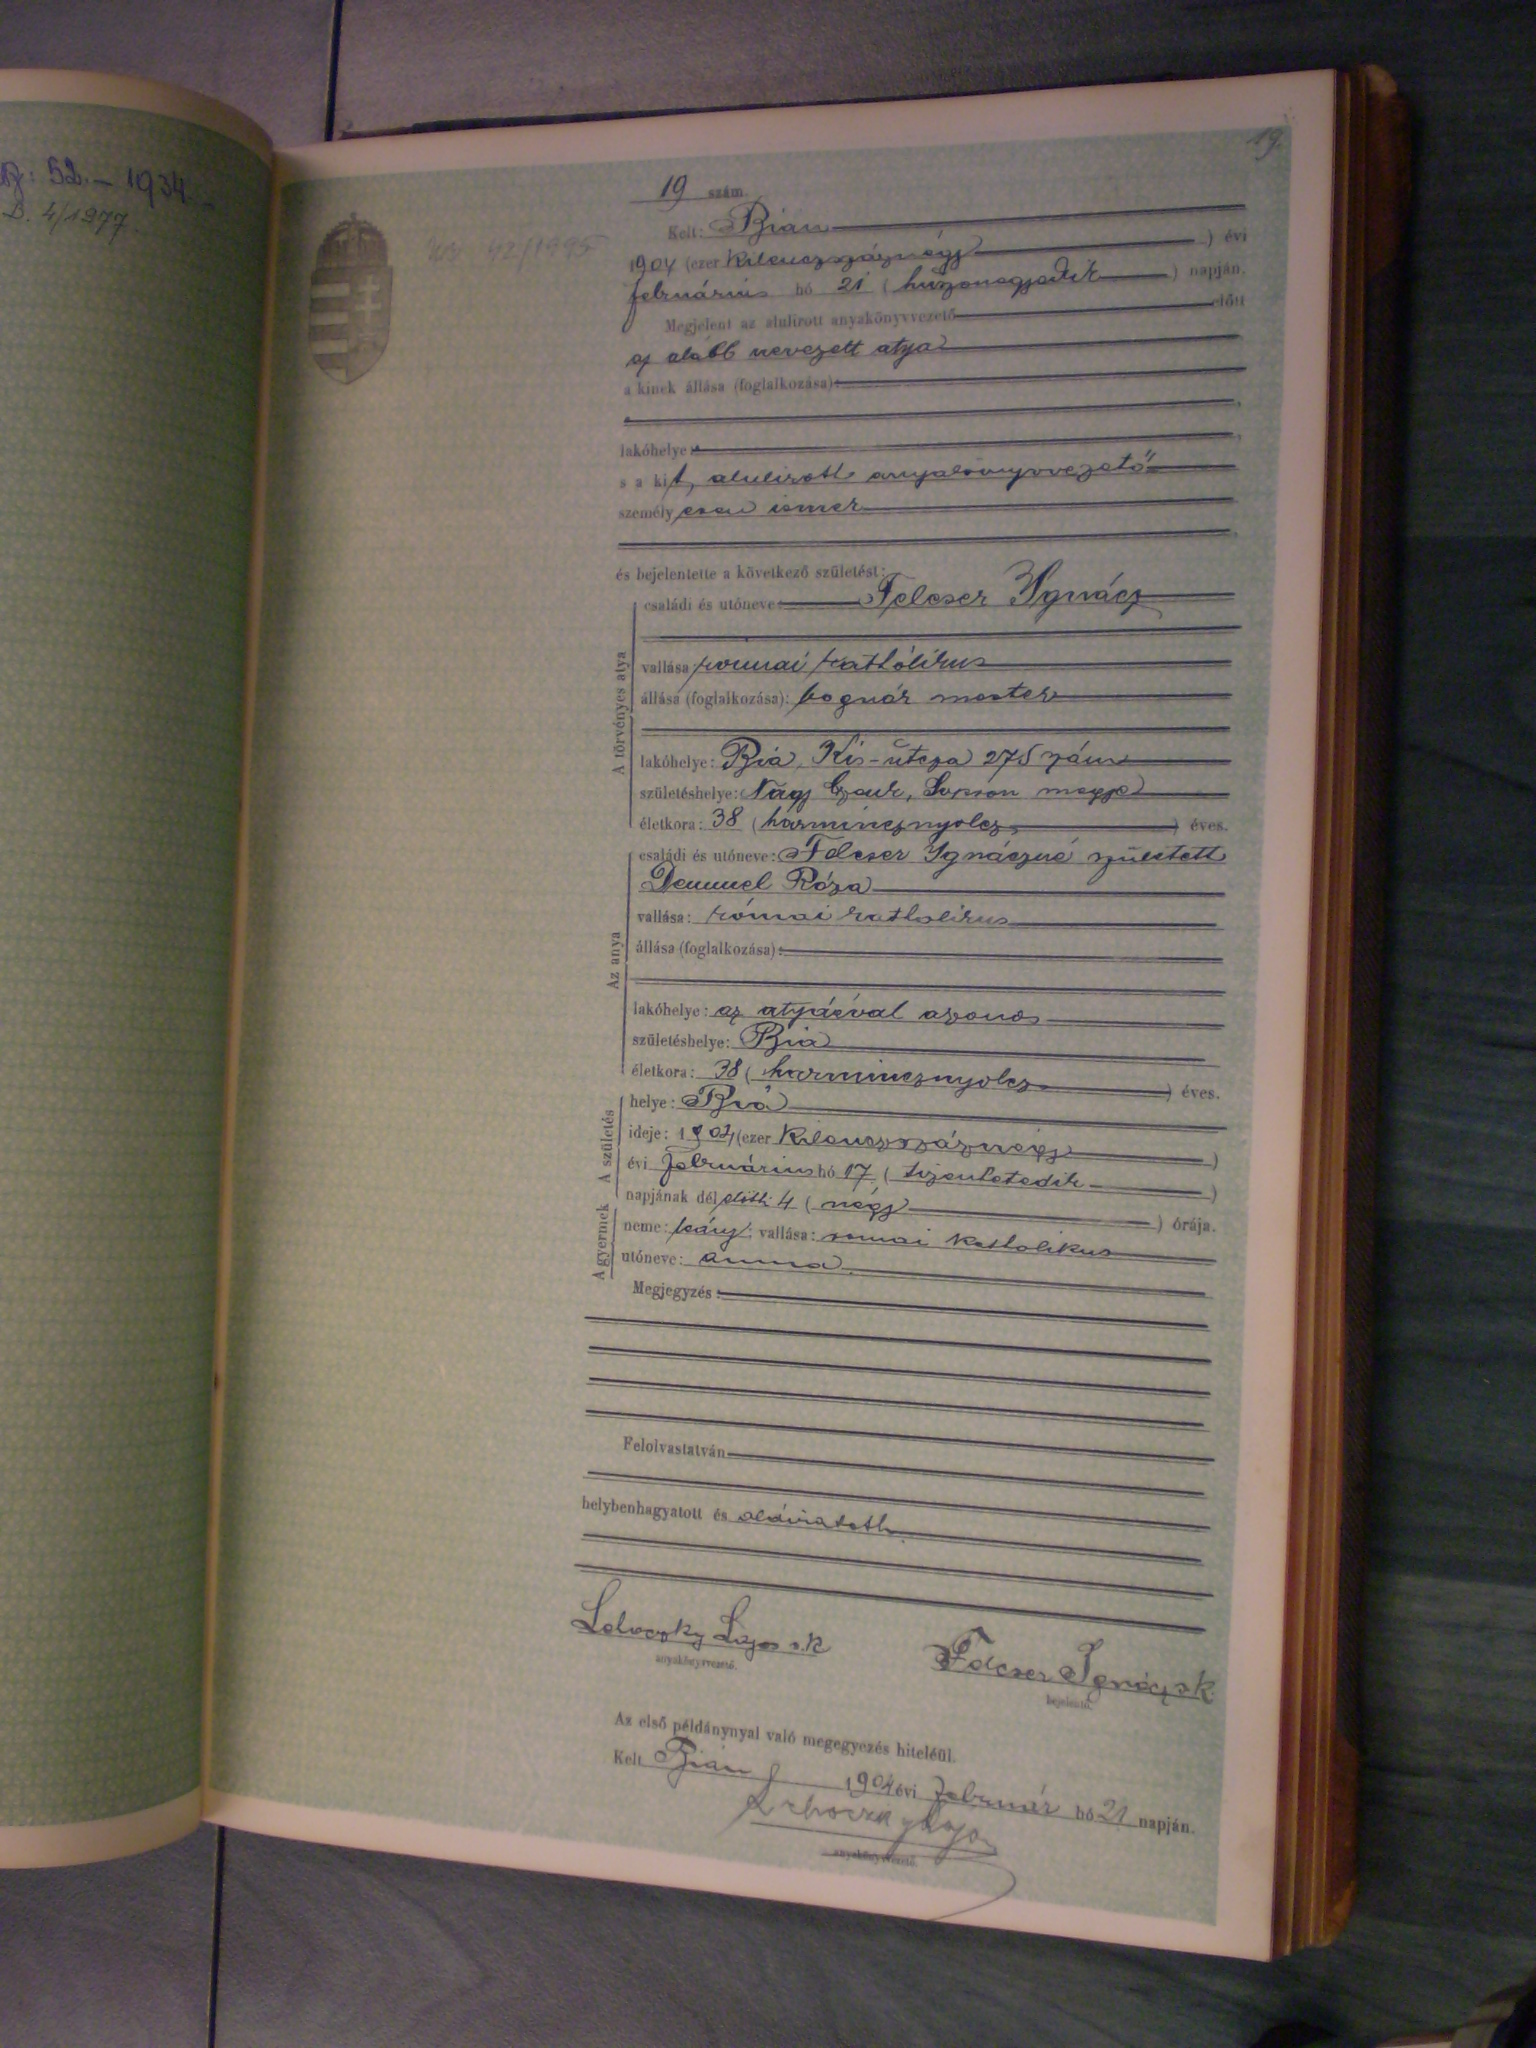 52.- 1934.
D. 4/1977.
19
42/1995
19 szám.
Kelt: Bián
1904 (ezer kilenczszáznégy) évi
február​ius hó 21 (huszonegyedik) napján.
Megjelent az alulirott anyakönyvvezető előtt
az alább nevezett atya
a kinek állása (foglalkozása):
lakóhelye:
s a kit, alulirott anyakönyvvezető
személyesen ismer
és bejelentette a következő születést:
A törvényes atya
családi és utóneve: Felcser Ignácz
vallása: romai kathólikus
állása (foglalkozása): bognár mester
lakóhelye: Bia, Kis-utcza 275 szám
születéshelye: Nagy Czenk, Sopron megye
életkora: 38 (harmincznyolcz) éves.
Az anya
családi és utóneve: Felcser Ignáczné született
Demmel Róza
vallása: római katholikus
állása (foglalkozása):
lakóhelye: az atyáéval azonos
születéshelye: Bia
életkora: 38 (harmincznyolcz) éves.
A születés
helye: Bia
ideje: 1904 (ezer kilenczszáznégy)
évi februárius hó 17 (tizenhetedik)
napjának dél előtti 4 (négy) órája.
A gyermek
neme: leány; vallása: romai katholikus
utóneve: Anna
Megjegyzés:
Felolvastatván
helybenhagyatott és aláiratott
Lajos s.k.
anyakönyvvezető.
Felcser Ignácz s.k.
bejelentő.
Az első példánynyal való megegyezés hiteléül.
Kelt Bián, 1904 évi február hó 21 napján.
anyakönyvvezető.